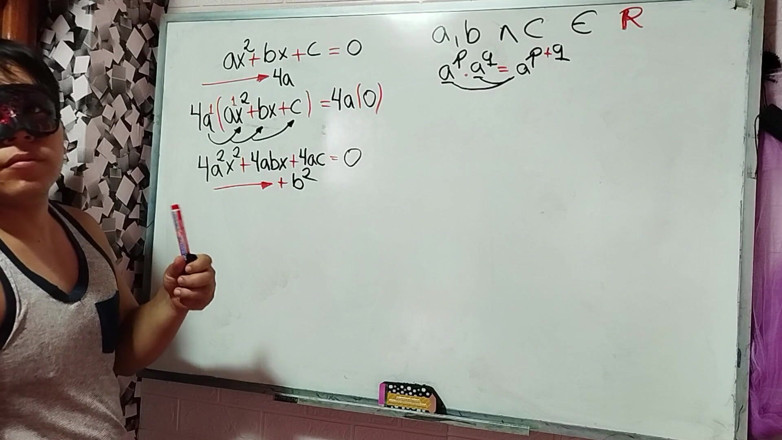 ax²+bx+c=0
4a
4a¹(a¹x²+bx+c)=4a(0)
4a²x²+4abx+4ac=0
+b²
a,b ∧ c ∈ R
aᵖ·a^q=a^p+q